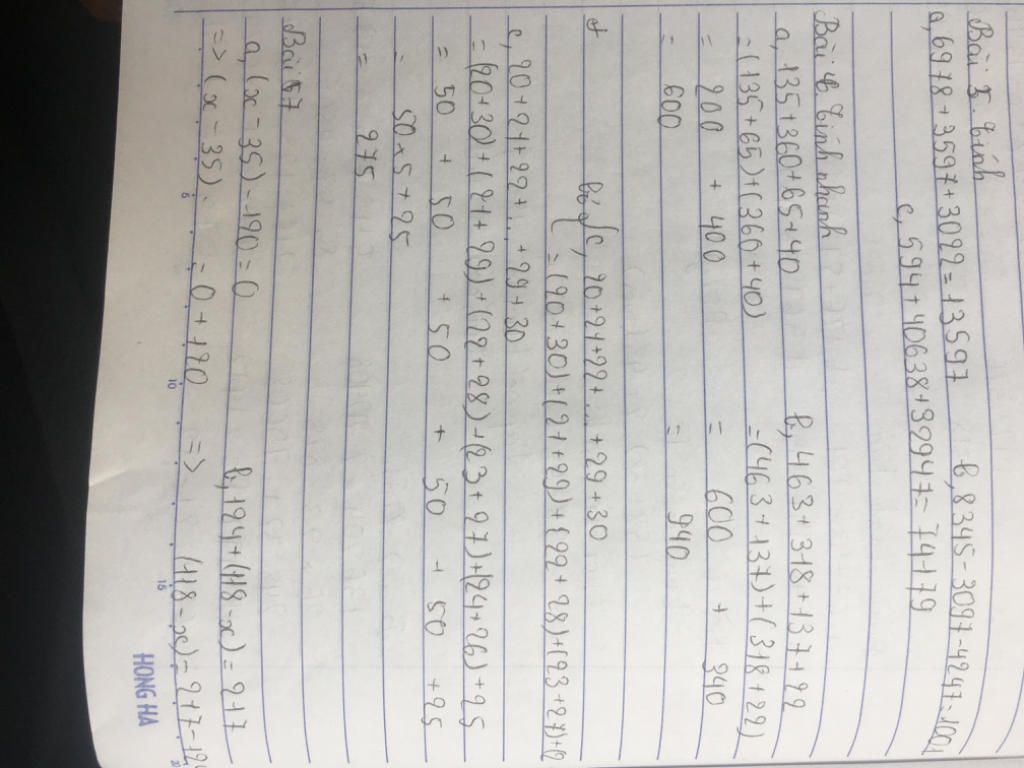 Bài 5. Tính
a, 6978 + 3597 + 3022 = 13597 b, 8345 - 3097 - 4247 = 1001
c, 594 + 40638 + 32947 = 74179
Bài 6 Tính nhanh
a, 135 + 360 + 65 + 40 b, 463 + 318 + 137 + 22
= (135 + 65) + (360 + 40) = (463 + 137) + (318 + 22)
= 200 + 400 = 600 + 340
= 600 = 940
c, 20 + 21 + 22 + ... + 29 + 30
= (20 + 30) + (21 + 29) + (22 + 28) + (23 + 27) + (2
c, 20 + 21 + 22 + ... + 29 + 30
= (20 + 30) + (21 + 29) + (22 + 28) + (23 + 27) + (24 + 26) + 25
= 50 + 50 + 50 + 50 + 50 + 25
= 50 × 5 + 25
= 275
Bài 7
a, (x - 35) - 120 = 0 b, 124 + (118 - x) = 217
=> (x - 35) = 0 + 120 => (118 - x) = 217 - 124
HONG HA
5 10 15 20